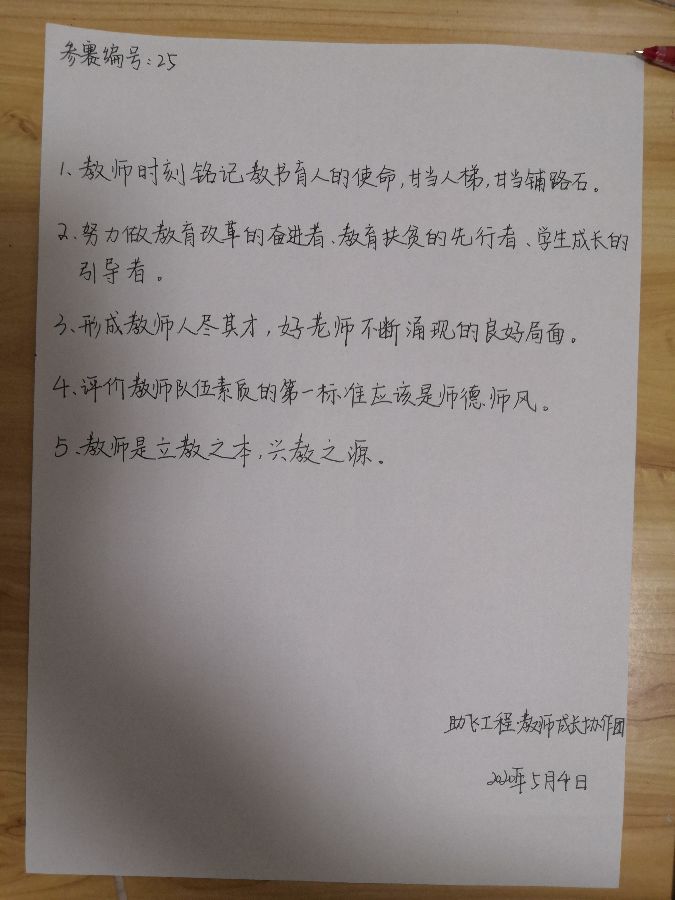 参赛编号：25
1、教师时刻铭记教书育人的使命，甘当人梯，甘当铺路石。
2、努力做教育改革的奋进者、教育扶贫的先行者、学生成长的
引导者。
3、形成教师人尽其才，好老师不断涌现的良好局面。
4、评价教师队伍素质的第一标准应该是师德师风。
5、教师是立教之本，兴教之源。
助飞工程·教师成长协作团
2020年5月4日